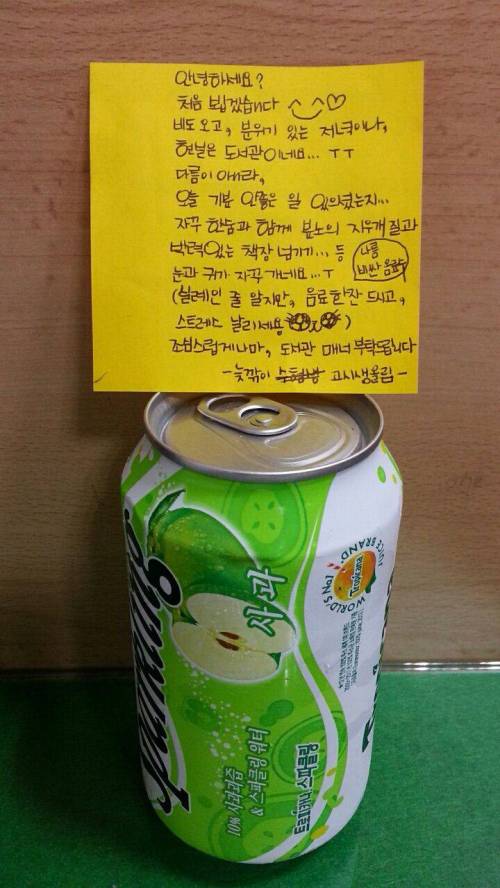 안녕하세요?
처음 뵙겠습니다 ^_^♡
비도 오고, 분위기 있는 저녁이나,
현실은 도서관이네요... ㅜㅜ
다름이 아니라,
오늘 기분 안좋은 일 있으셨는지...
자꾸 한숨과 함께 분노의 지우개질과
박력있는 책장 넘기기... 등
나름 비싼 음료
눈과 귀가 자꾸 가네요...ㅜ
(실례인 줄 알지만, 음료한잔 드시고,
스트레스 날리세용)
조심스럽게나마, 도서관 매너 부탁드립니다
- 늦깎이 고시생올림 -
사과
WORLD'S No.1
JUICE BRAND
Tropicana
Sparkling
10% 사과과즙
& 스파클링 워터
트로피카나 스파클링